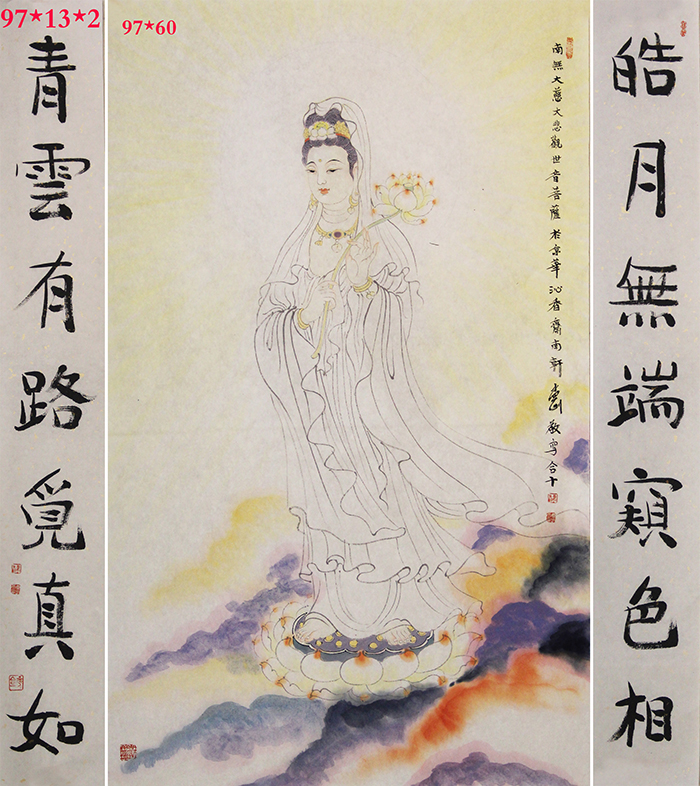 97*13*2
97*60
皓月無端窺色相
南無大慈大悲觀世音菩薩 於京華沁香齋南軒
敬寫合十
青雲有路覓真如